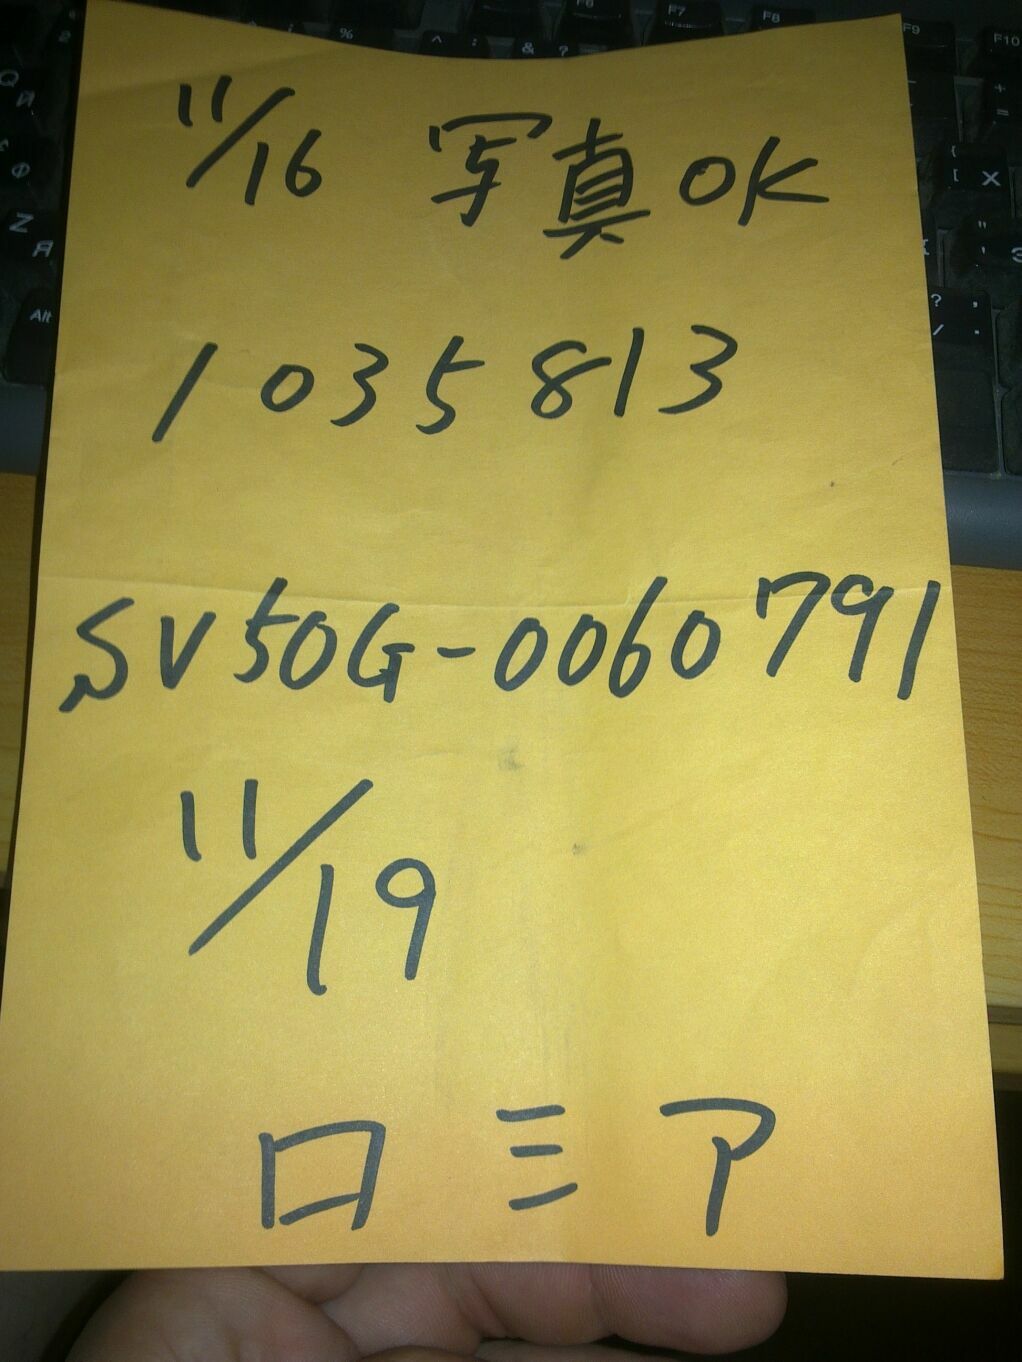 11/16 写真OK
1035813
SV50G-0060791
11/19
ロミア